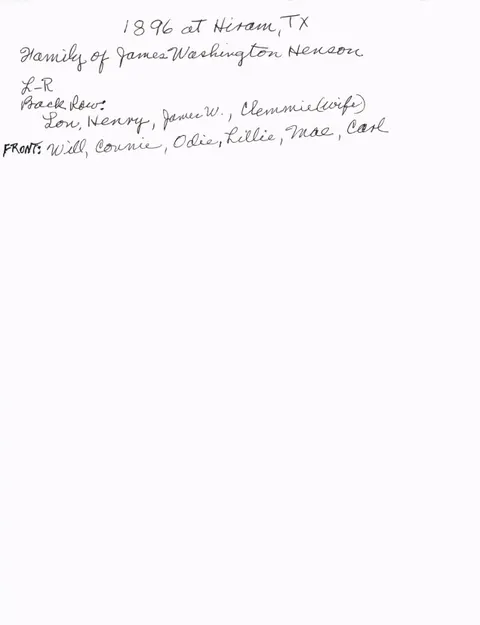 1896 at Hiram, TX
Family of James Washington Henson
L-R
Back Row:
Lon, Henry, James W., Clemmie (wife)
FRONT: Will, Connie, Odie, Lillie, Mae, Carl